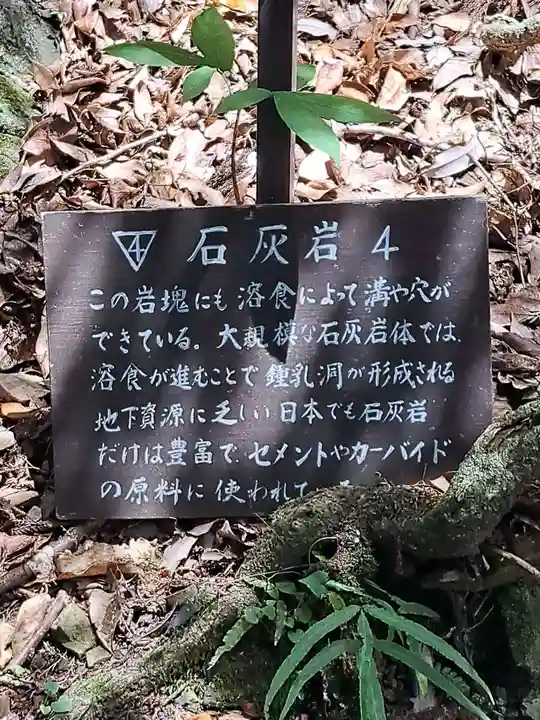 4 石灰岩4
この岩塊にも溶食によって溝や穴が
できている。大規模な石灰岩体では、
溶食が進むことで鍾乳洞が形成される
地下資源に乏しい日本でも石灰岩
だけは豊富で、セメントやカーバイド
の原料に使われて